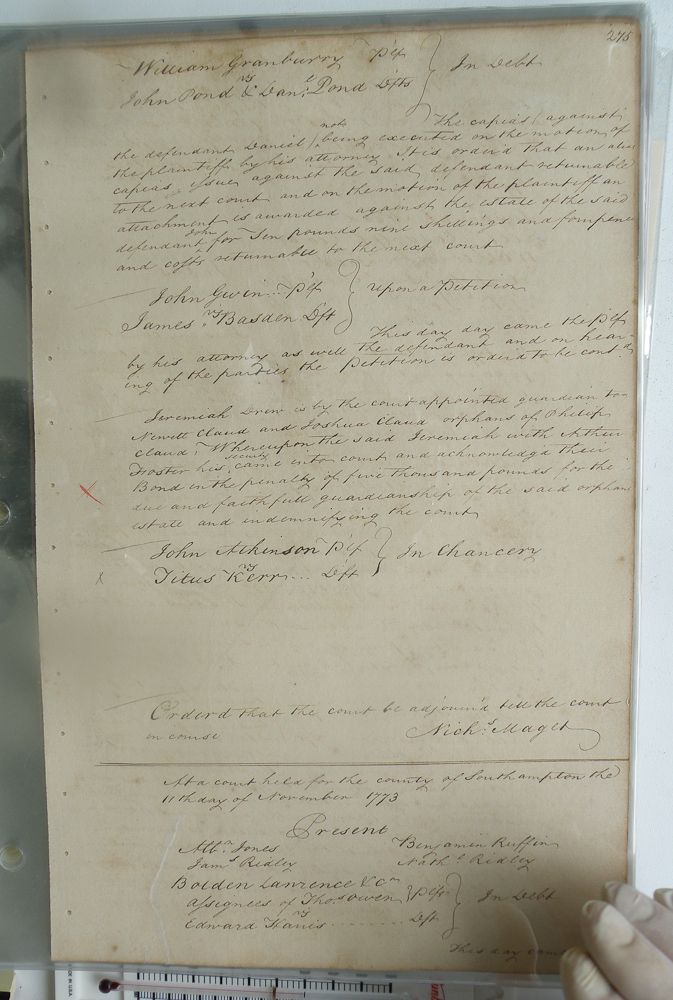 275
William Granburry Plf } In Debt
vs
John Pond & Dan.l Pond Dfts
The capias against
the defendant Daniel not being executed on the motion of
the plaintiff by his attorney It is order'd that an alias
capias issue against the said defendant returnable
to the next court and on the motion of the plaintiff an
attachment is awarded against the estate of the said
defendant John for Ten pounds nine shillings and fourpence
and costs returnable to the next court
John Gwin... Plf } upon a Petition
vs
James Basden Dft
This day day came the Plf
by his attorney as well the defendant and on hear-
ing of the parties the Petition is order'd to be cont.d
Jeremiah Drew is by the court appointed guardian to
Newett Claud and Joshua Claud orphans of Philip
Claud. Whereupon the said Jeremiah with Arthur
Foster his security came into court and acknowledg'd their
Bond in the penalty of five thousand pounds for the
due and faithfull guardianship of the said orphans
estate and indemnifying the court
John Atkinson Plf } In Chancery
vs
Titus Kerr... Dft
Order'd that the court be adjourn'd till the court
in course
Nich.s Maget
At a court held for the county of Southampton the
11th day of November 1773
Present
Alb.n Jones Benjamin Ruffin
Jam.s Ridley Nath.l Ridley
Bolden Lawrence & Co
assignees of Tho.s Owen } Plfs } In Debt
vs
Edward Harris ......... Dft
This day came